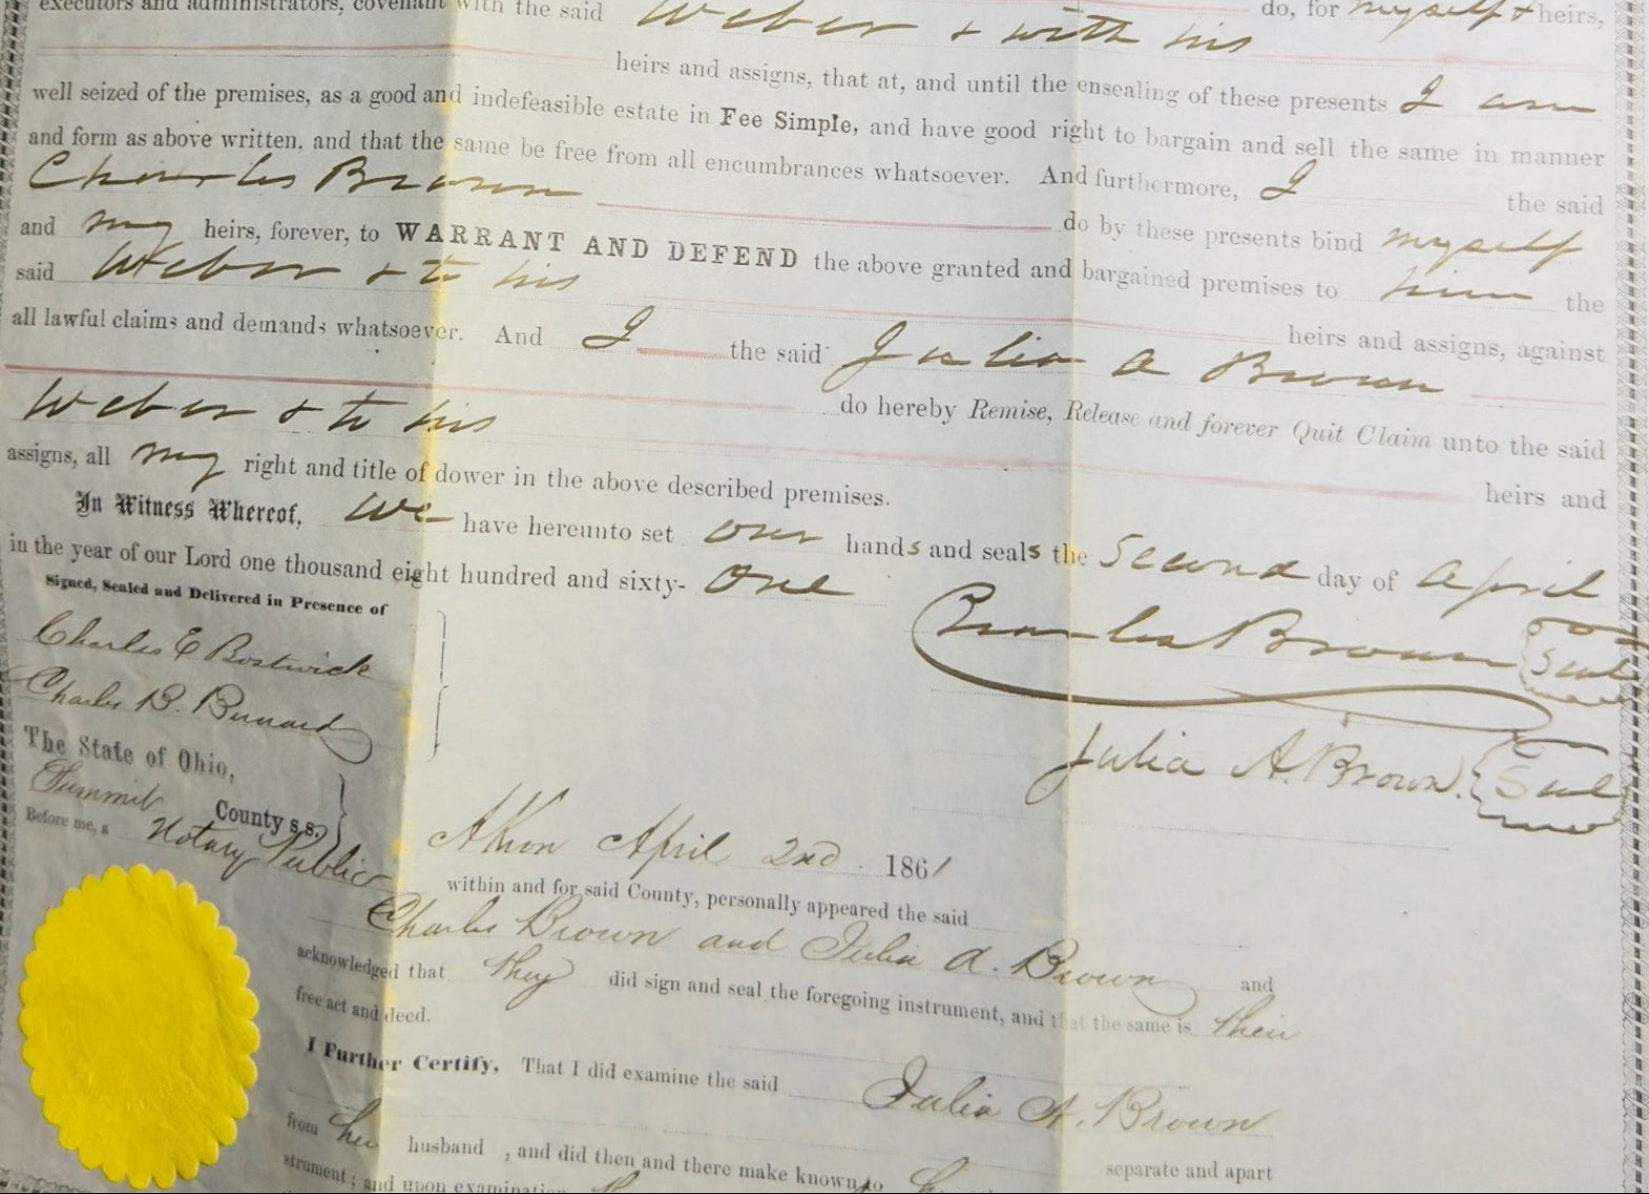 executors and administrators, covenant with the said Weber & with his do, for myself & heirs,
heirs and assigns, that at, and until the ensealing of these presents I am
well seized of the premises, as a good and indefeasible estate in Fee Simple, and have good right to bargain and sell the same in manner
and form as above written, and that the same be free from all encumbrances whatsoever. And furthermore, I the said
Charles Brown do by these presents bind myself
and my heirs, forever, to WARRANT AND DEFEND the above granted and bargained premises to him the
said Weber & to his heirs and assigns, against
all lawful claims and demands whatsoever. And I the said Julia A Brown
do hereby Remise, Release and forever Quit Claim unto the said
Weber & to his heirs and
assigns, all my right and title of dower in the above described premises.
In Witness Whereof, we have hereunto set our hands and seals the Second day of April
in the year of our Lord one thousand eight hundred and sixty- one
Signed, Sealed and Delivered in Presence of
Charles Brown Seal
Charles E Bostwick
Charles B. Bernard
Julia A. Brown. Seal
The State of Ohio,
Summit County s.s.
Akron April 2nd 1861
Before me, a Notary Public within and for said County, personally appeared the said
Charles Brown and Julia A. Brown and
acknowledged that they did sign and seal the foregoing instrument, and that the same is their
free act and deed.
I Further Certify, That I did examine the said Julia A. Brown
separate and apart
from her husband, and did then and there make known to
strument; and upon examination